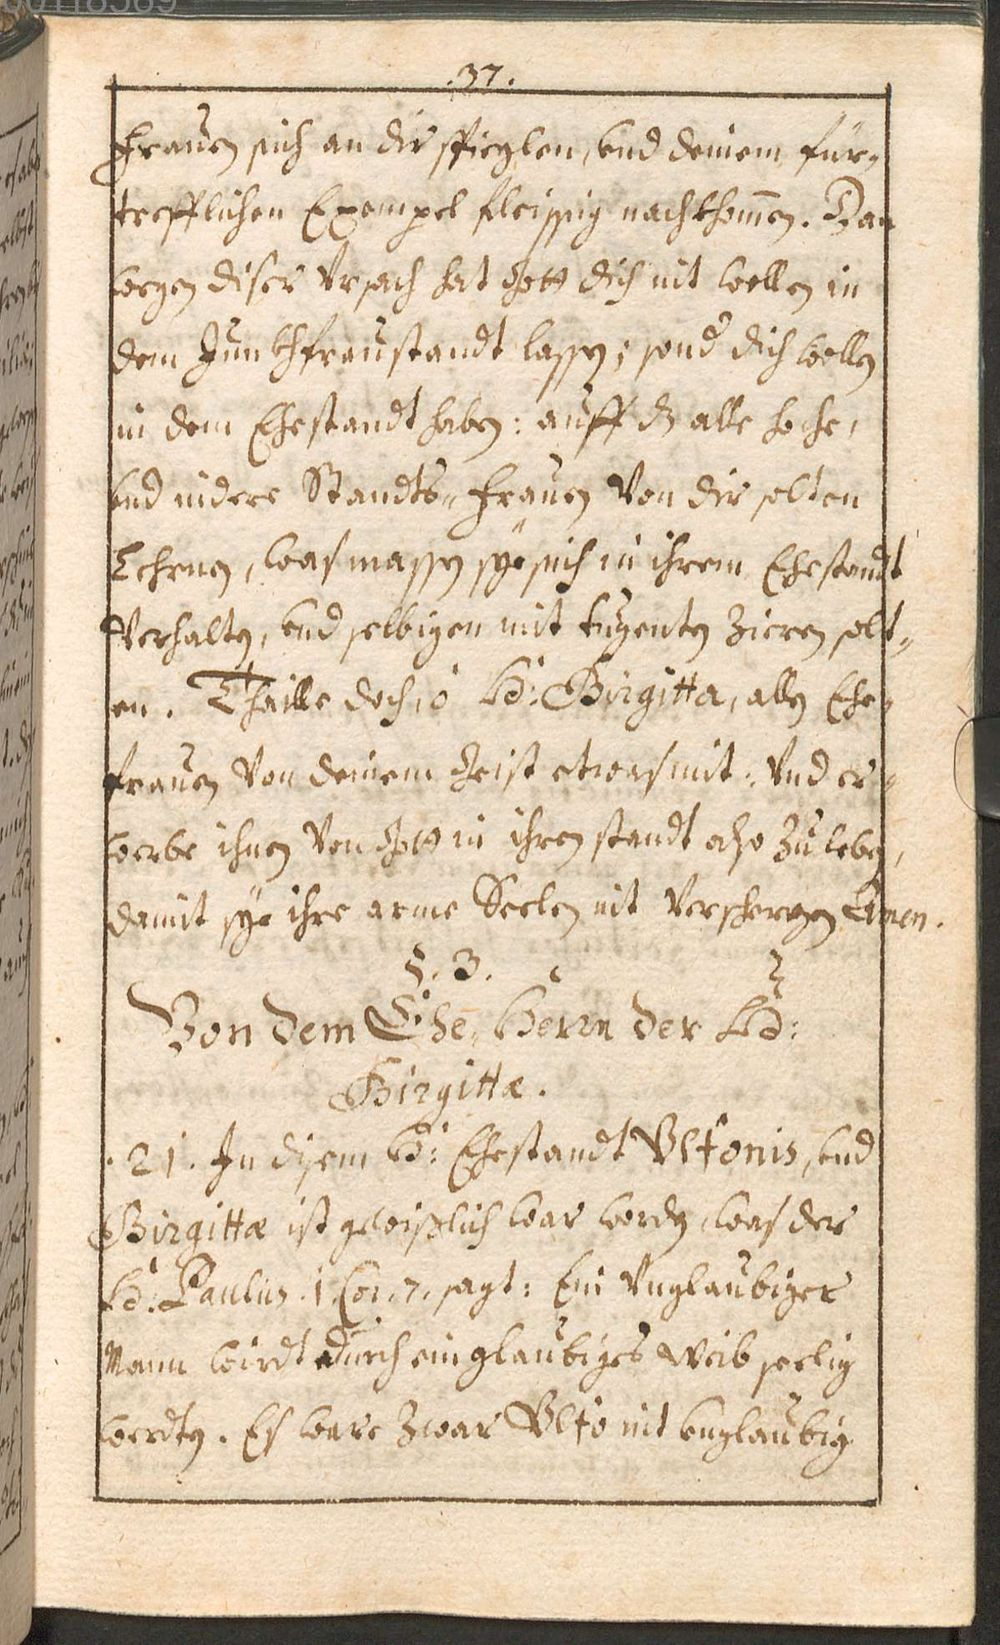 .37.
Frauen sich an dir spieglen, und deinem für-
trefflichen Exempel fleissig nachkhom̄en. Dan
wegen diser Ursach hat Gott dich nit wellen in
dem Junkhfraustandt lassen; sond' dich wellen
in dem Ehestandt haben: auff dz alle hoche,
und nidere Standts-Frauen von dir solten
Lehrnen, was massen sÿe sich in ihrem Ehestandt
Verhalten, und selbigen mit tugenten Zieren solt-
en. Thaille doch, ô H: Birgitta, allen Ehe-
frauen Von deinem Geist etwas mit: Und er-
werbe ihnen Von Gott in ihren standt also Zu leben,
damit sÿe ihre arme Seelen nit Verscherzen Amen.
§. 3.
Von dem Ehe-Herrn der H:
Birgittæ.
.21. In disem H: Ehestandt Ulfonis, und
Birgittæ ist gewißlich war worden, was der
H: Paulus .1. Cor. 7. sagt: Ein Unglaubiger
Mann wirdt durch ein glaubiges Weib seelig
werdten. Es ware Zwar Ulfo nit unglaubig